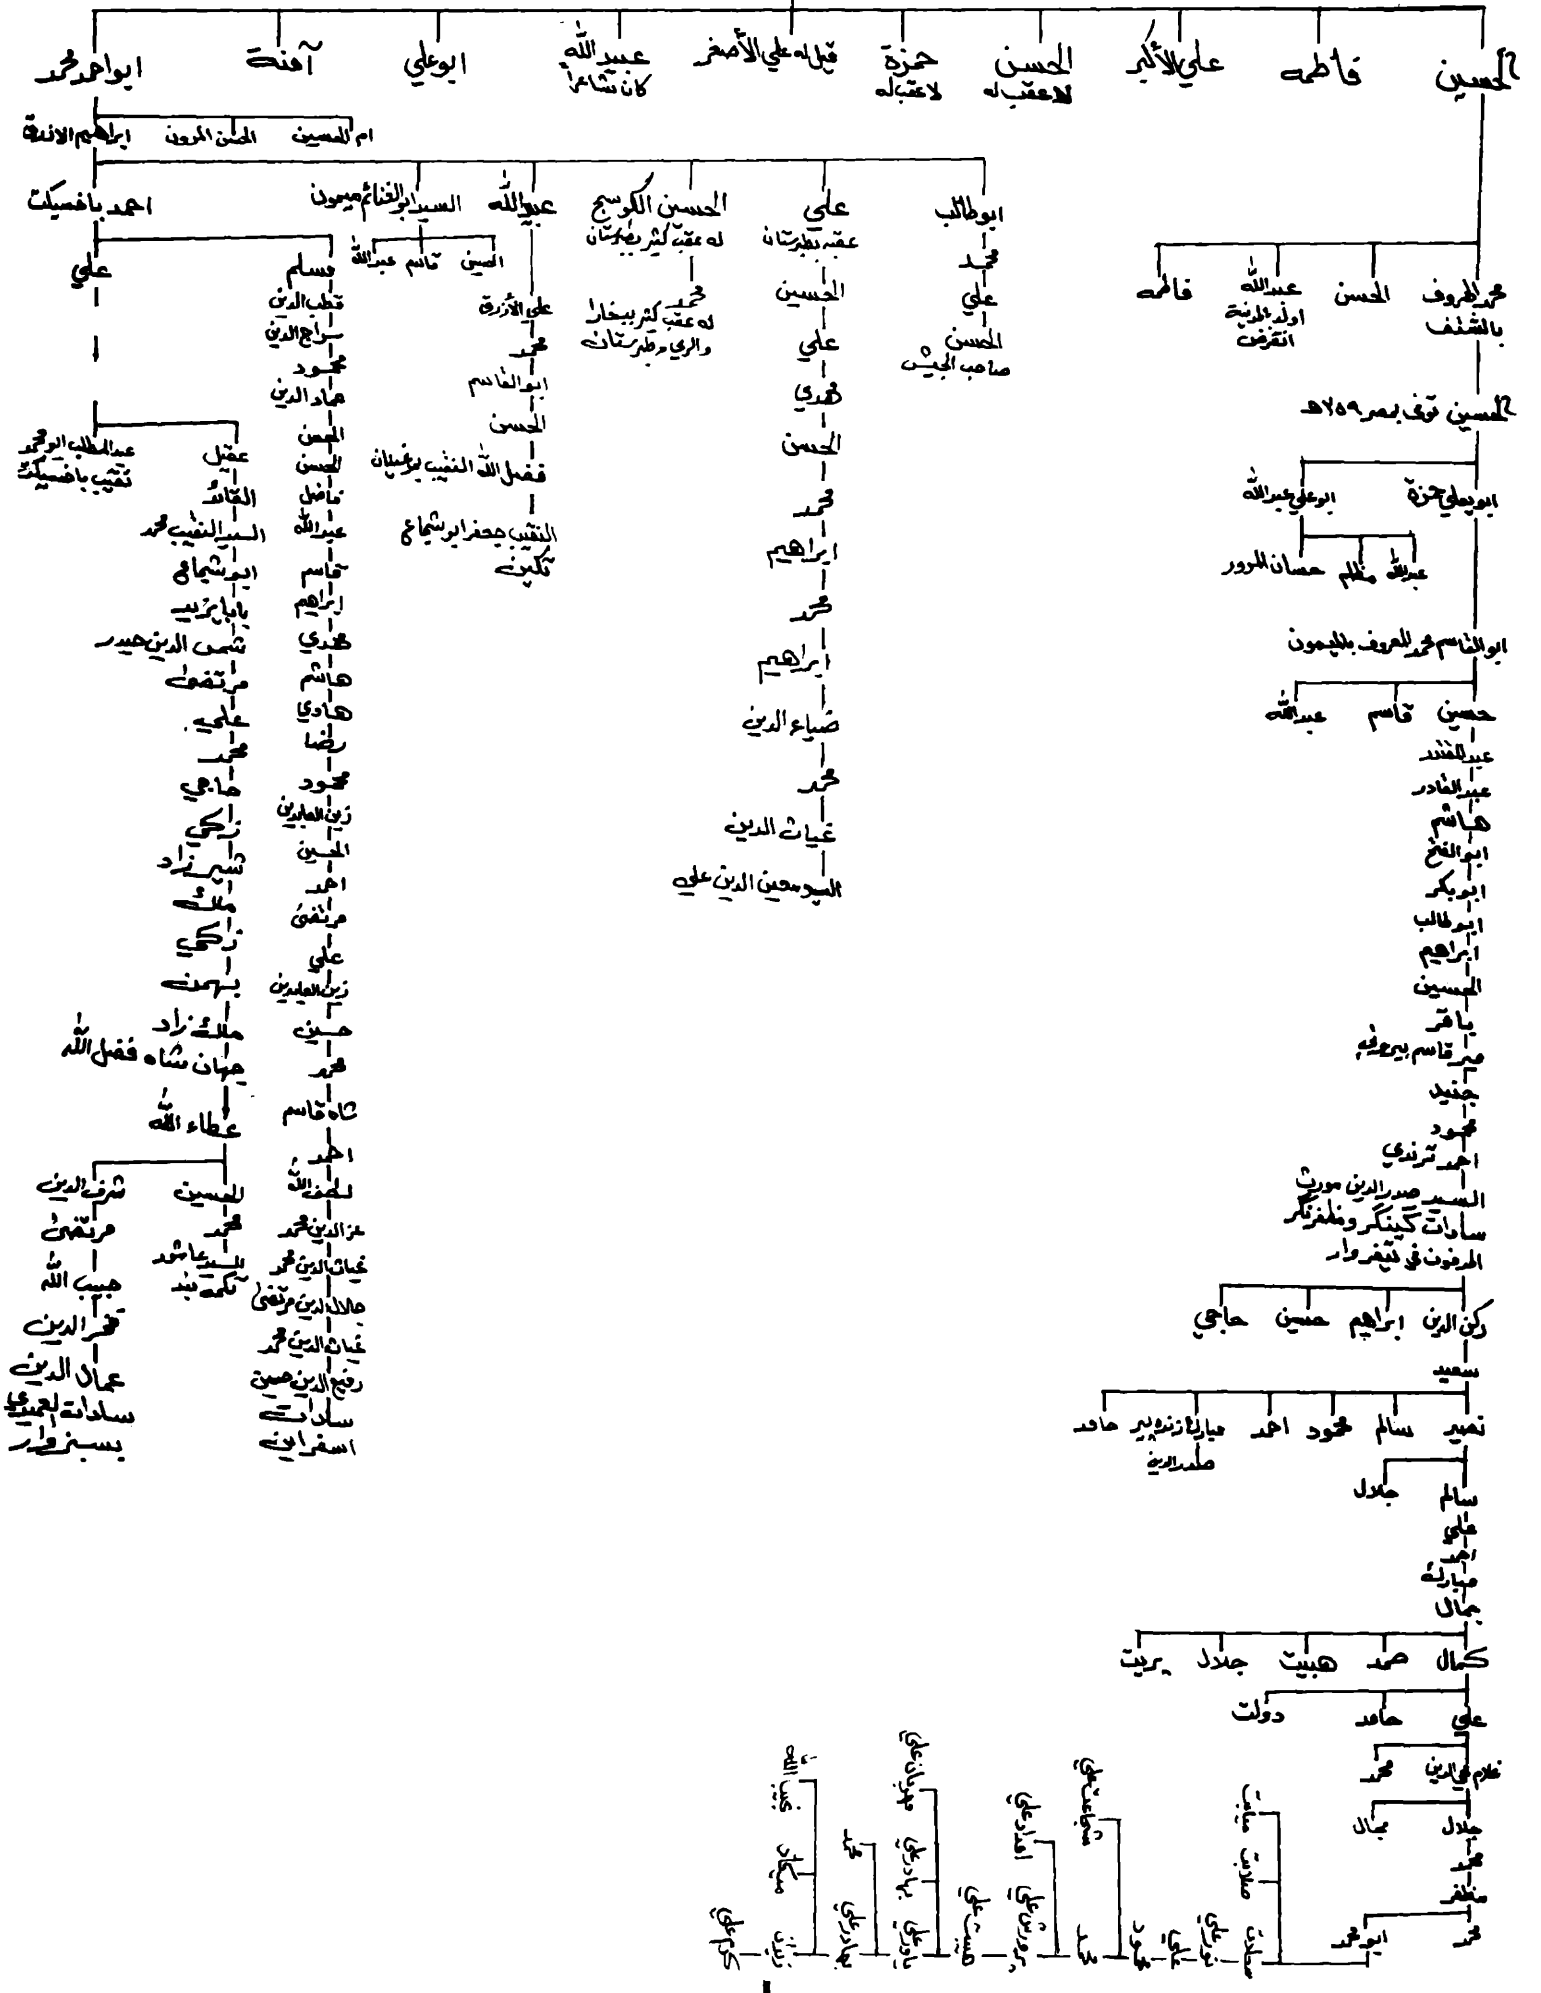 الحسين
فاطمه
علي الأكبر
الحسن
لا عقب له
حمزة
لا عقب له
قيل له علي الأصغر
عبيد الله
كان شاعرا
ابو علي
آمنة
ابو احمد محمد
ام الحسين
ابراهيم الازرق
ابو طالب
محمد
علي
الحسن
صاحب الجيش
علي
عقبه بطبرستان
الحسين
علي
مهدي
الحسن
محمد
ابراهيم
محمد
ابراهيم
ضياء الدين
محمد
غياث الدين
السيد معين الدين علي
الحسين الكوسج
له عقب كثير بطبرستان
محمد
له عقب كثير ببخارا
والري وطبرستان
عبدالله
علي الأزرق
محمد
ابو القاسم
الحسن
فضل الله النقيب
النقيب جعفر ابو شجاع
تكين
السيد ابو الغنائم ميمون
الحسين
قاسم
عبدالله
احمد باخسيكت
مسلم
قطب الدين
سراج الدين
محمود
عماد الدين
الحسن
الحسن
فاضل
عبدالله
قاسم
ابراهيم
مهدي
هاشم
هادي
رضا
محمود
زين العابدين
الحسين
احمد
مرتضى
علي
زين العابدين
حسين
محمد
شاه قاسم
احمد
لطف الله
عز الدين محمد
غياث الدين محمد
جلال الدين مرتضى
غياث الدين محمد
رفيع الدين حسين
سادات
اسفراين
علي
عبد المطلب ابو محمد
نقيب باخسيكت
عقيل
القائد
السيد النقيب محمد
ابو شجاع
بايزيد
شمس الدين حيدر
مرتضى
علي
محمد
حاجي
زكي
شيرزاد
ملك
زكي
بهمن
ملك زاد
جهان شاه فضل الله
عطاء الله
الحسين
محمد
السيد عاشور
تكمه بند
شرف الدين
مرتضى
حبيب الله
فخر الدين
عماد الدين
سادات لعميدي
بسبزوار
محمد المعروف
بالشنف
الحسن
عبدالله
اولد بالمدينة
انقرض
فاطمه
الحسين توفى بمصر ٧٥٩هـ
ابو يعلي حمزة
ابو علي عبدالله
عبدالله
مظلم
ابو القاسم محمد المعروف بالميمون
حسين
قاسم
عبدالله
عبد المقتدر
عبد القادر
هاشم
ابو الفتح
ابو بكر
ابو طالب
ابراهيم
الحسين
باقر
مير قاسم بيروني
جنيد
محمود
احمد ترندي
السيد صدر الدين مورث
سادات
المدفون في
ركن الدين
ابراهيم
حسين
حاجي
سعيد
نصير
سالم
محمود
احمد
مبارك زنده پير
حامد
صدر الدين
سالم
جلال
علي
احمد
مبارك
جمال
كمال
صمد
هيبت
جلال
پريت
علي
حامد
دولت
غلام محي الدين
محمد
جلال
جمال
محمد
مظفر
محمد
ابو محمد
سعادت
صلابت
نور علي
علي
محمود
محمد
شجاعت علي
پرورش علي
امداد علي
هيبت علي
ياور علي
بهادر علي
مهربان علي
بهادر علي
محمد
كرم علي